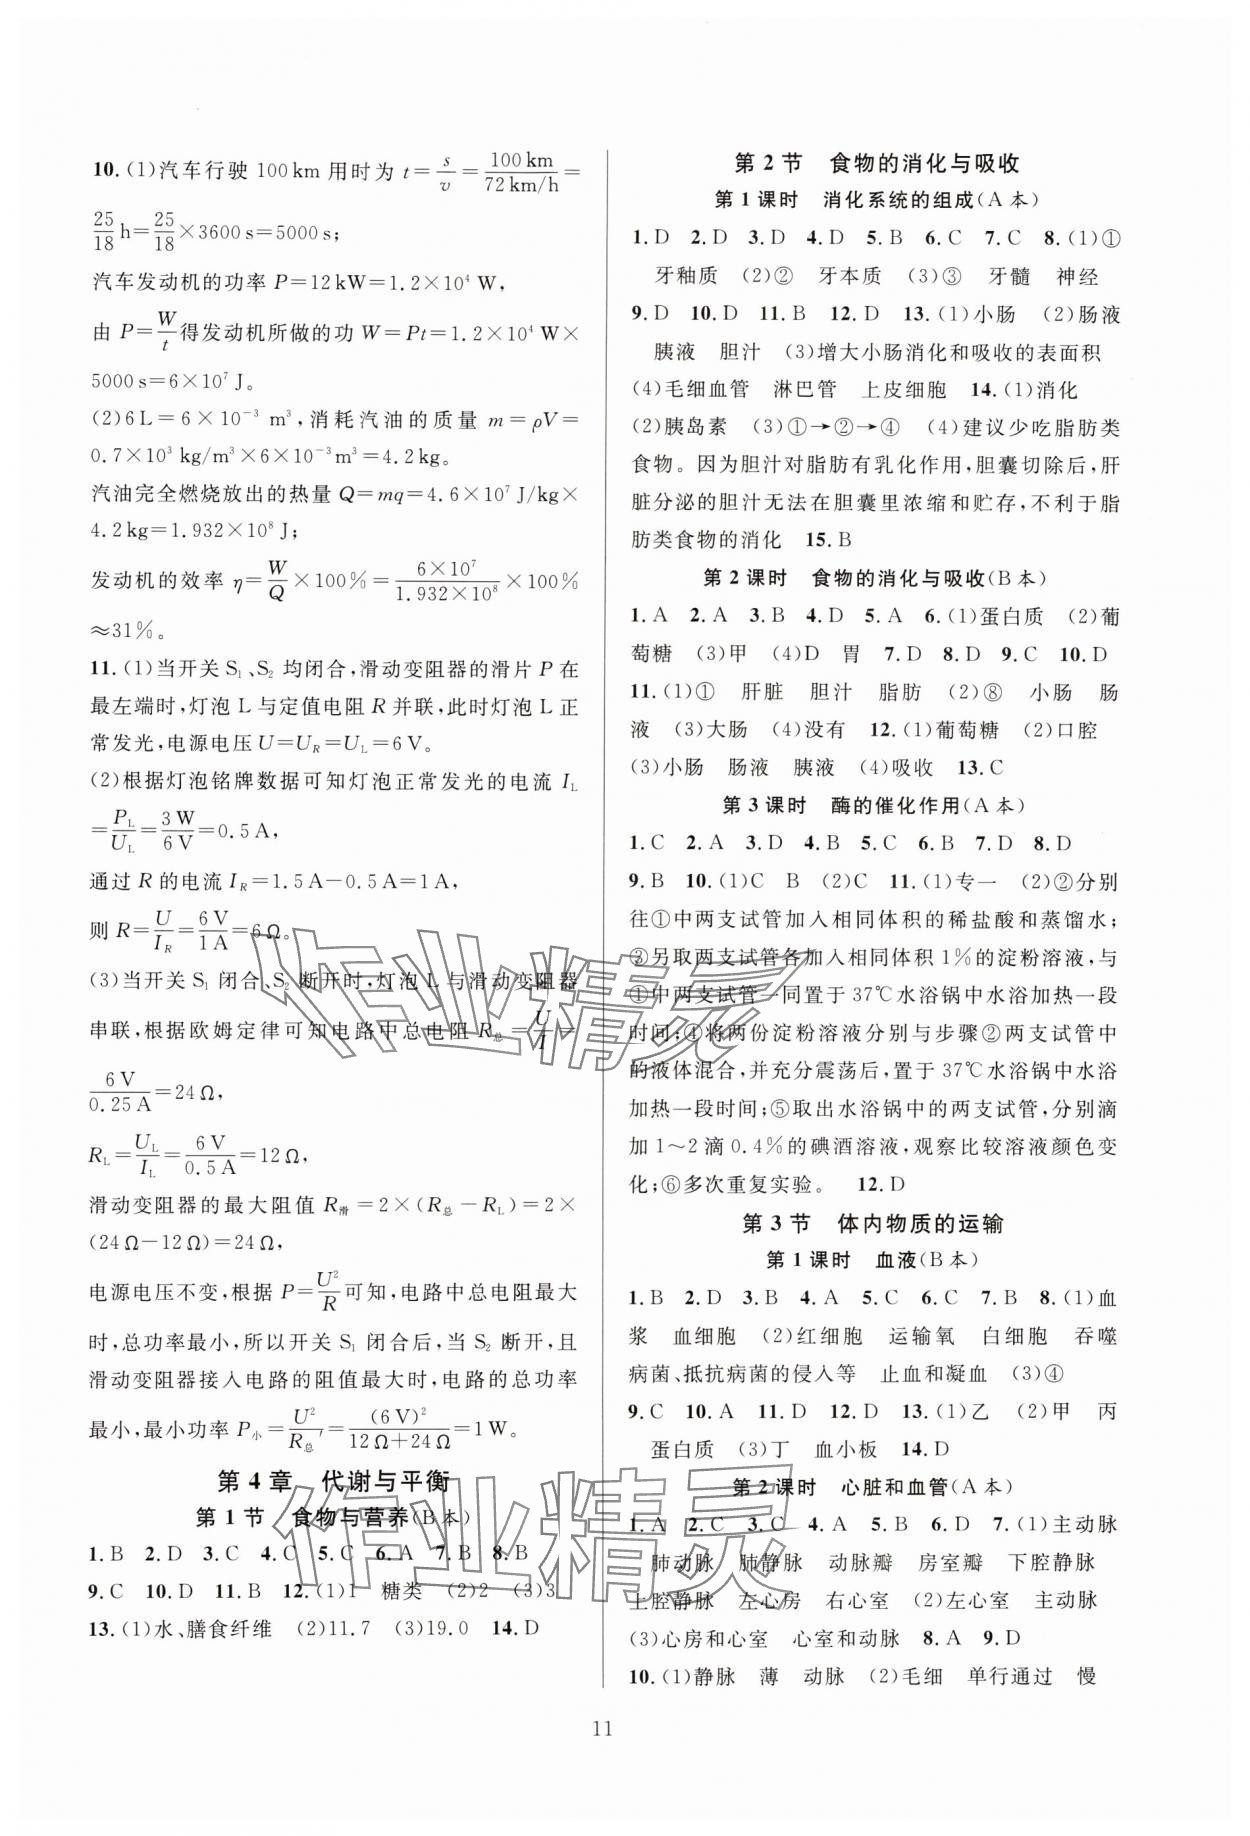 10.(1)汽车行驶100 km用时为 t=s/v=100 km/72 km/h=
25/18 h=25/18×3600 s=5000 s;
汽车发动机的功率 P=12 kW=1.2×10⁴ W,
由 P=W/t得发动机所做的功 W=Pt=1.2×10⁴ W×
5000 s=6×10⁷ J。
(2)6 L=6×10⁻³ m³,消耗汽油的质量 m=ρV=
0.7×10³ kg/m³×6×10⁻³m³=4.2 kg。
汽油完全燃烧放出的热量 Q=mq=4.6×10⁷ J/kg×
4.2 kg=1.932×10⁸ J;
发动机的效率 η=W/Q×100%=6×10⁷/1.932×10⁸×100%
≈31%。
11.(1)当开关 S₁、S₂ 均闭合,滑动变阻器的滑片 P 在
最左端时,灯泡 L 与定值电阻 R 并联,此时灯泡 L 正
常发光,电源电压 U=U_R=U_L=6 V。
(2)根据灯泡铭牌数据可知灯泡正常发光的电流 I_L
=P_L/U_L=3 W/6 V=0.5 A,
通过 R 的电流 I_R=1.5 A−0.5 A=1 A,
则 R=U/I_R=6 V/1 A=6 Ω。
(3)当开关 S₁ 闭合、S₂ 断开时,灯泡 L 与滑动变阻器
串联,根据欧姆定律可知电路中总电阻 R总=U/I=
6 V/0.25 A=24 Ω,
R_L=U_L/I_L=6 V/0.5 A=12 Ω,
滑动变阻器的最大阻值 R滑=2×(R总−R_L)=2×
(24 Ω−12 Ω)=24 Ω,
电源电压不变,根据 P=U²/R可知,电路中总电阻最大
时,总功率最小,所以开关 S₁ 闭合后,当 S₂ 断开,且
滑动变阻器接入电路的阻值最大时,电路的总功率
最小,最小功率 P小=U²/R总′=(6 V)²/12 Ω+24 Ω=1 W。
第4章 代谢与平衡
第1节 食物与营养(B本)
1.B 2.D 3.C 4.C 5.C 6.A 7.B 8.B
9.C 10.D 11.B 12.(1)1 糖类 (2)2 (3)3
13.(1)水、膳食纤维 (2)11.7 (3)19.0 14.D
第2节 食物的消化与吸收
第1课时 消化系统的组成(A本)
1.D 2.D 3.D 4.D 5.B 6.C 7.C 8.(1)①
牙釉质 (2)② 牙本质 (3)③ 牙髓 神经
9.D 10.D 11.B 12.D 13.(1)小肠 (2)肠液
胰液 胆汁 (3)增大小肠消化和吸收的表面积
(4)毛细血管 淋巴管 上皮细胞 14.(1)消化
(2)胰岛素 (3)①→②→④ (4)建议少吃脂肪类
食物。因为胆汁对脂肪有乳化作用,胆囊切除后,肝
脏分泌的胆汁无法在胆囊里浓缩和贮存,不利于脂
肪类食物的消化 15.B
第2课时 食物的消化与吸收(B本)
1.A 2.A 3.B 4.D 5.A 6.(1)蛋白质 (2)葡
萄糖 (3)甲 (4)D 胃 7.D 8.D 9.C 10.D
11.(1)① 肝脏 胆汁 脂肪 (2)⑧ 小肠 肠
液 (3)大肠 (4)没有 12.(1)葡萄糖 (2)口腔
(3)小肠 肠液 胰液 (4)吸收 13.C
第3课时 酶的催化作用(A本)
1.C 2.A 3.D 4.B 5.C 6.B 7.D 8.D
9.B 10.(1)C B (2)C 11.(1)专一 (2)②分别
往①中两支试管加入相同体积的稀盐酸和蒸馏水;
③另取两支试管各加入相同体积1%的淀粉溶液,与
①中两支试管一同置于37℃水浴锅中水浴加热一段
时间;④将两份淀粉溶液分别与步骤②两支试管中
的液体混合,并充分震荡后,置于37℃水浴锅中水浴
加热一段时间;⑤取出水浴锅中的两支试管,分别滴
加1~2滴0.4%的碘酒溶液,观察比较溶液颜色变
化;⑥多次重复实验。 12.D
第3节 体内物质的运输
第1课时 血液(B本)
1.B 2.D 3.B 4.A 5.C 6.C 7.B 8.(1)血
浆 血细胞 (2)红细胞 运输氧 白细胞 吞噬
病菌、抵抗病菌的侵入等 止血和凝血 (3)④
9.C 10.A 11.D 12.D 13.(1)乙 (2)甲 丙
蛋白质 (3)丁 血小板 14.D
第2课时 心脏和血管(A本)
1.A 2.C 3.C 4.A 5.B 6.D 7.(1)主动脉
肺动脉 肺静脉 动脉瓣 房室瓣 下腔静脉
上腔静脉 左心房 右心室 (2)左心室 主动脉
(3)心房和心室 心室和动脉 8.A 9.D
10.(1)静脉 薄 动脉 (2)毛细 单行通过 慢
11
作业精灵
作业精灵